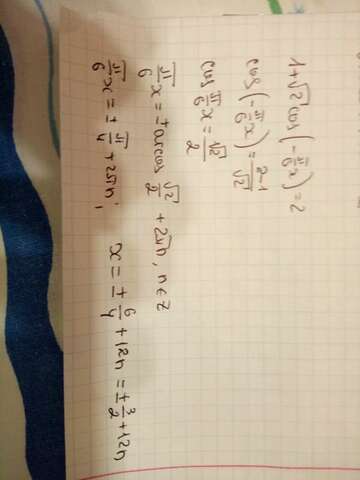 1+√2 cos(-π/6 x)=2
cos(-π/6 x)=2-1/√2
cos π/6 x = √2/2
π/6 x = ± arccos √2/2 + 2πn, n∈Z
π/6 x = ± π/4 + 2πn; x = ± 6/4 + 12n = ± 3/2 + 12n